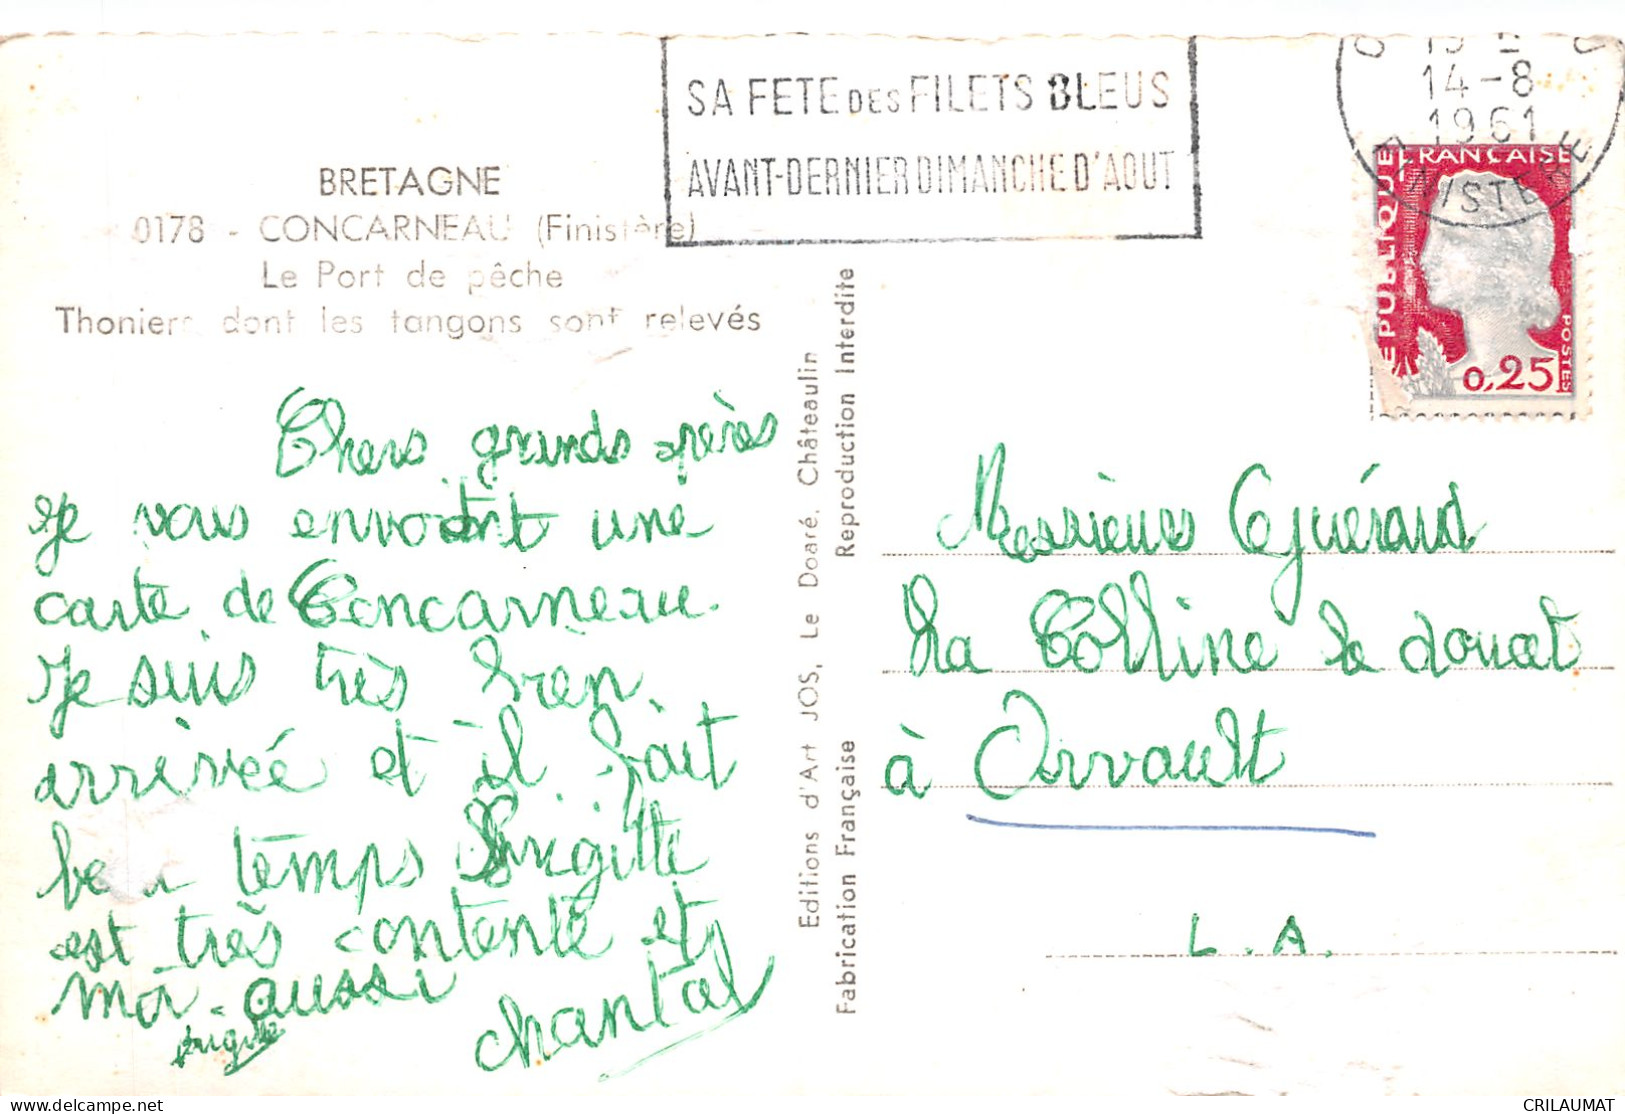 SA FETE DES FILETS BLEUS
AVANT-DERNIER DIMANCHE D'AOUT
14-8
1961
FINISTERE
REPUBLIQUE FRANÇAISE
POSTES
0,25
BRETAGNE
0178 - CONCARNEAU (Finistère)
Le Port de pêche
Thoniers dont les tangons sont relevés
Chers grands-pères
Je vous envoint une
carte de Concarneau.
Je suis très bien
arrivée et il fait
beau temps Brigitte
est très contente et
moi aussi
Brigitte
chantal
Editions d'Art JOS, Le Doaré, Châteaulin
Fabrication Française
Reproduction Interdite
Messieurs Guéraud
La Colline le douet
à Orvault
L. A.
CRILAUMAT